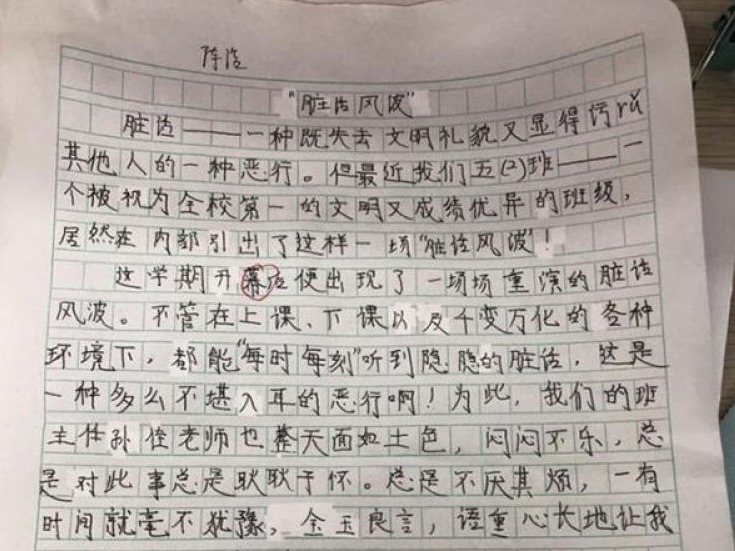 陈浩
“脏话风波”
脏话——一种既失去文明礼貌又显得污rǔ
其他人的一种恶行。但最近我们五(2)班——一
个被视为全校第一的文明又成绩优异的班级，
居然在内部引出了这样一场“脏话风波”！
这学期开幕后便出现了一场场重演的脏话
风波。不管在上课、下课以及千变万化的各种
环境下，都能“每时每刻”听到隐隐的脏话，这是
一种多么不堪入耳的恶行啊！为此，我们的班
主任孙佳老师也整天面如土色，闷闷不乐，总
是对此事总是耿耿于怀。总是不厌其烦，一有
时间就毫不犹豫，金玉良言，语重心长地让我